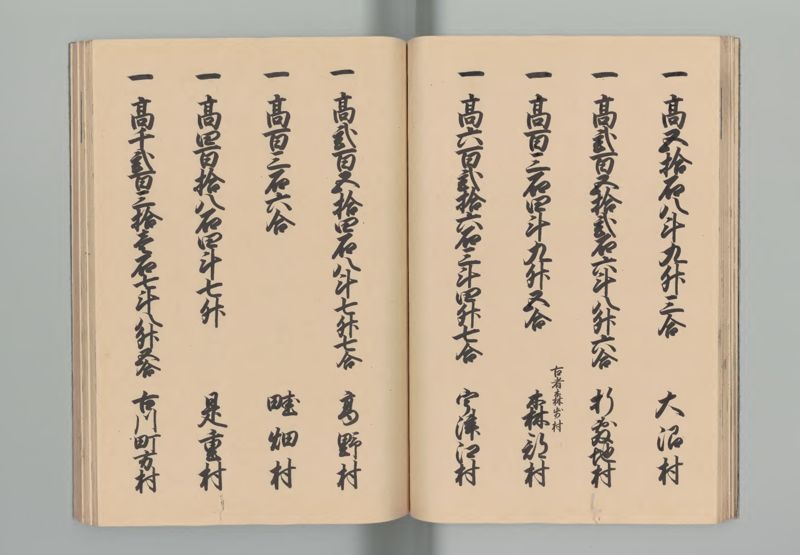 一 高五拾石八斗九升三合 大沼村
一 高弐百五拾弐石六斗八升六合 杉崎村
古者森安村
一 高百三石四斗九升五合 森部村
一 高六百弐拾六石三斗四升七合 宇津江村
一 高弐百五拾四石八斗七升七合 高野村
一 高百三石六合 畦畑村
一 高四百拾八石四斗七升 是重村
一 高千弐百三拾壱石七斗八升五合 古川町方村